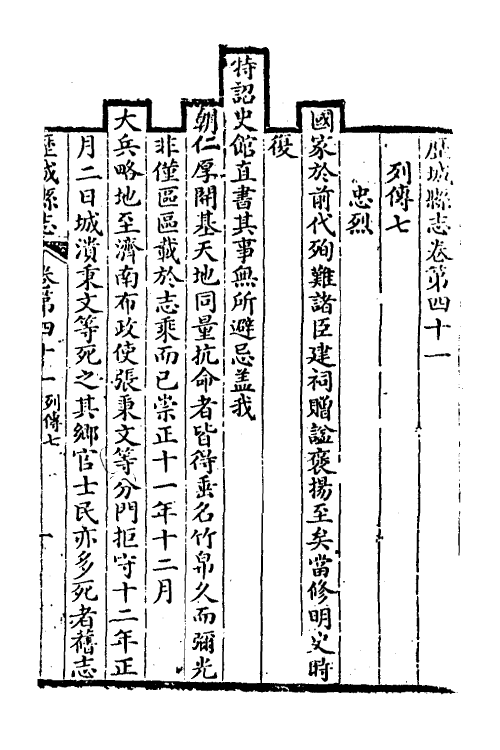 歷城縣志卷第四十一
列傳七
忠烈
國家於前代殉難諸臣建祠贈諡襃揚至矣當修明史時
復
特詔史館直書其事無所避忌盖我
朝仁厚開基天地同量抗命者皆得垂名竹帛久而彌光
非僅區區載於志乘而已崇正十一年十二月
大兵略地至濟南布政使張秉文等分門拒守十二年正
月二日城潰秉文等死之其鄉官士民亦多死者舊志
歷城縣志 卷第四十一 列傳七 一